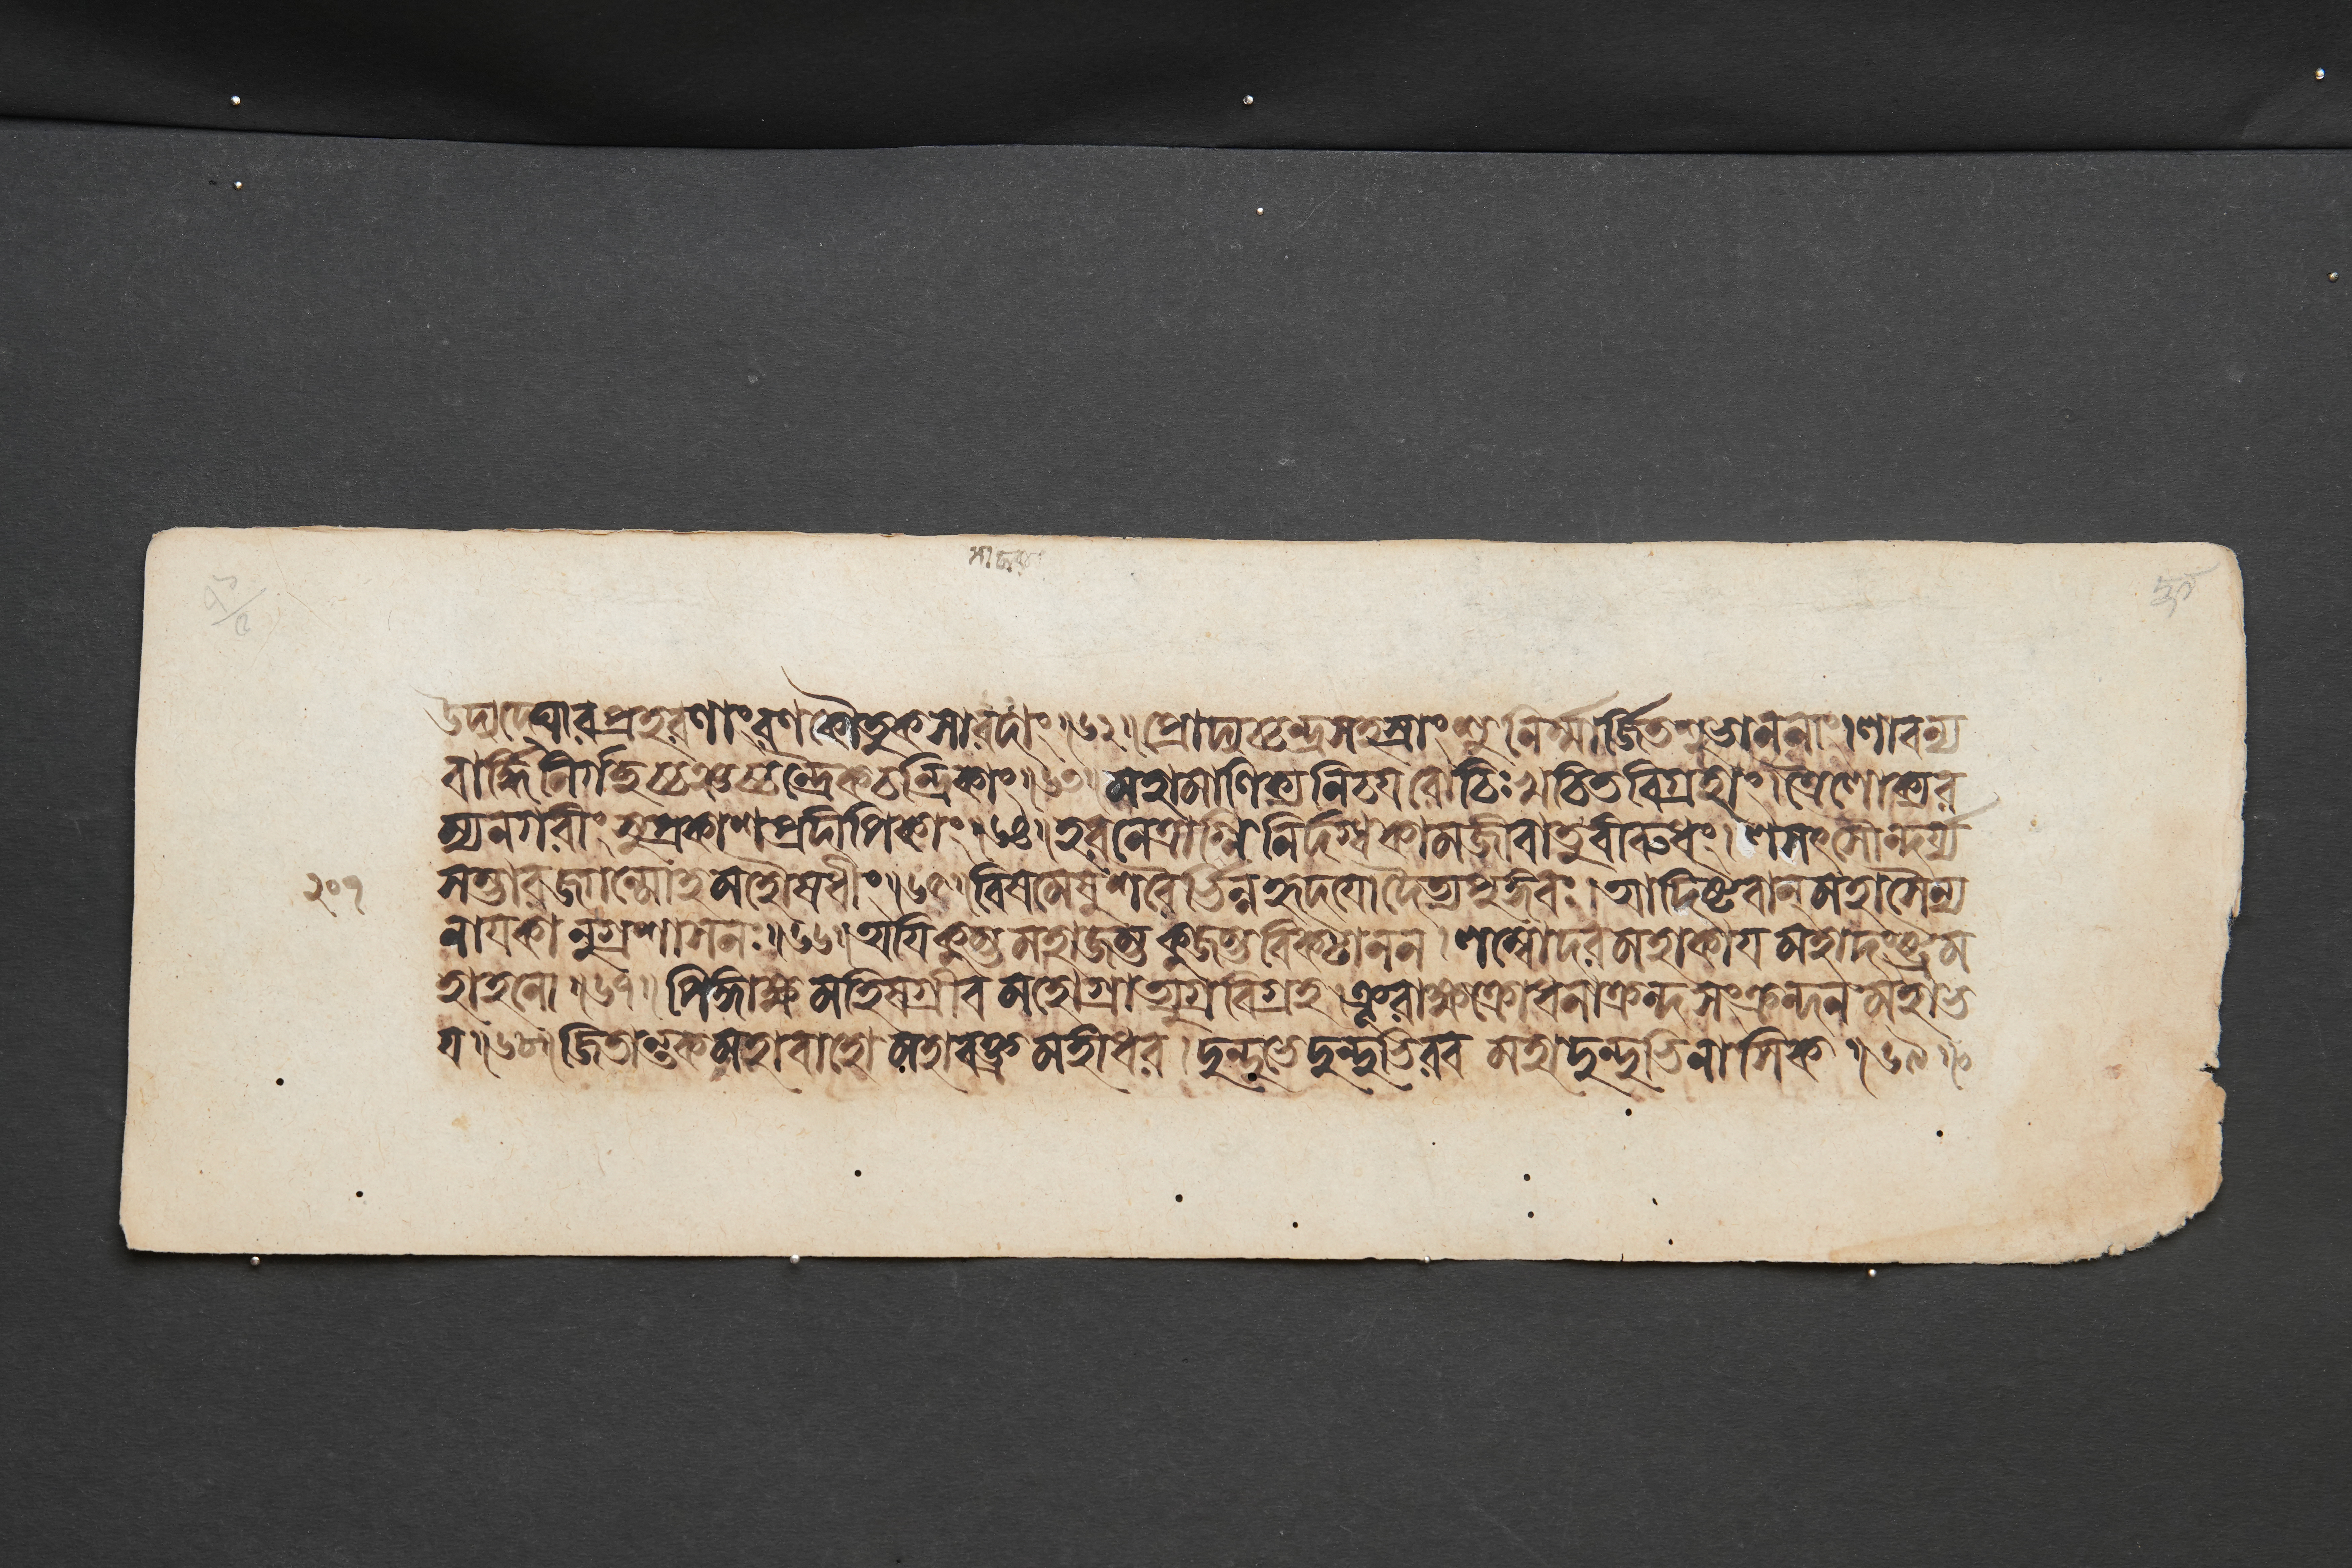 উদ্যদ্ঘোরপ্রহরণাং রণকৌতুকসারদাং॥৬২॥প্রোদ্যচ্চন্দ্রসহস্রাংশুনির্ম্মার্জ্জিতশুভাননাং।লাবন্য
বার্দ্ধিনির্গচ্ছচ্চঞ্চচ্চন্দ্রৈকচন্দ্রিকাং॥৬৩॥মহামাণিক্যনিচয়রোচিঃখচিতবিগ্রহাং।ত্রৈলোক্যর
ম্যনগরীং সুপ্রকাশপ্রদীপিকাং॥৬৪॥হরনেত্রাগ্নিনির্দগ্ধকামজীবাতুবীরুধং।লসৎসৌন্দর্য্য
সম্ভারজগন্মোহমহৌষধীং॥৬৫॥বিষমেষুশরৈর্ভিন্নহৃদয়ো দৈত্যপুঙ্গবঃ।আদিষ্টবান্মহাসৈন্য
নায়কানুগ্রশাসনঃ॥৬৬॥অয়ি কুম্ভ মহাজম্ভ কুজম্ভ বিকটানন।লম্বোদর মহাকায় মহাদংষ্ট্র ম
হাহনো॥৬৭॥পিঙ্গাক্ষ মহিষগ্রীব মহোগ্রাত্যুগ্রবিগ্রহ।ক্রূরাক্ষ ক্রোধনাক্রন্দ সংক্রন্দন মহাভ
য়॥৬৮॥জিতান্তক মহাবাহো মহাবক্ত্র মহীধর।দুন্দুভে দুন্দুভিরব মহাদুন্দুভিনাসিক॥৬৯॥
২০৭